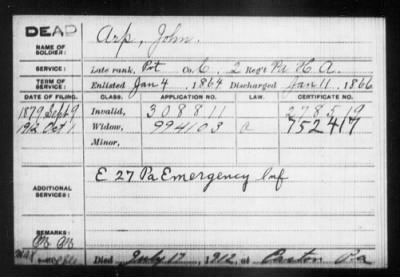 DEAD
NAME OF SOLDIER: Arp, John.
SERVICE: Late rank, Pvt Co. C, 2 Reg't Pa H.A.
TERM OF SERVICE: Enlisted Jan 4, 1864 Discharged Jan 11, 1866
DATE OF FILING. CLASS. APPLICATION NO. LAW. CERTIFICATE NO.
1879 Sept 9 Invalid, 308811 278519
1912 Oct 1 Widow, 994103 a 752417
Minor,
ADDITIONAL SERVICES: E 27 Pa Emergency Inf
REMARKS:
Died July 17, 1912, at Easton Pa